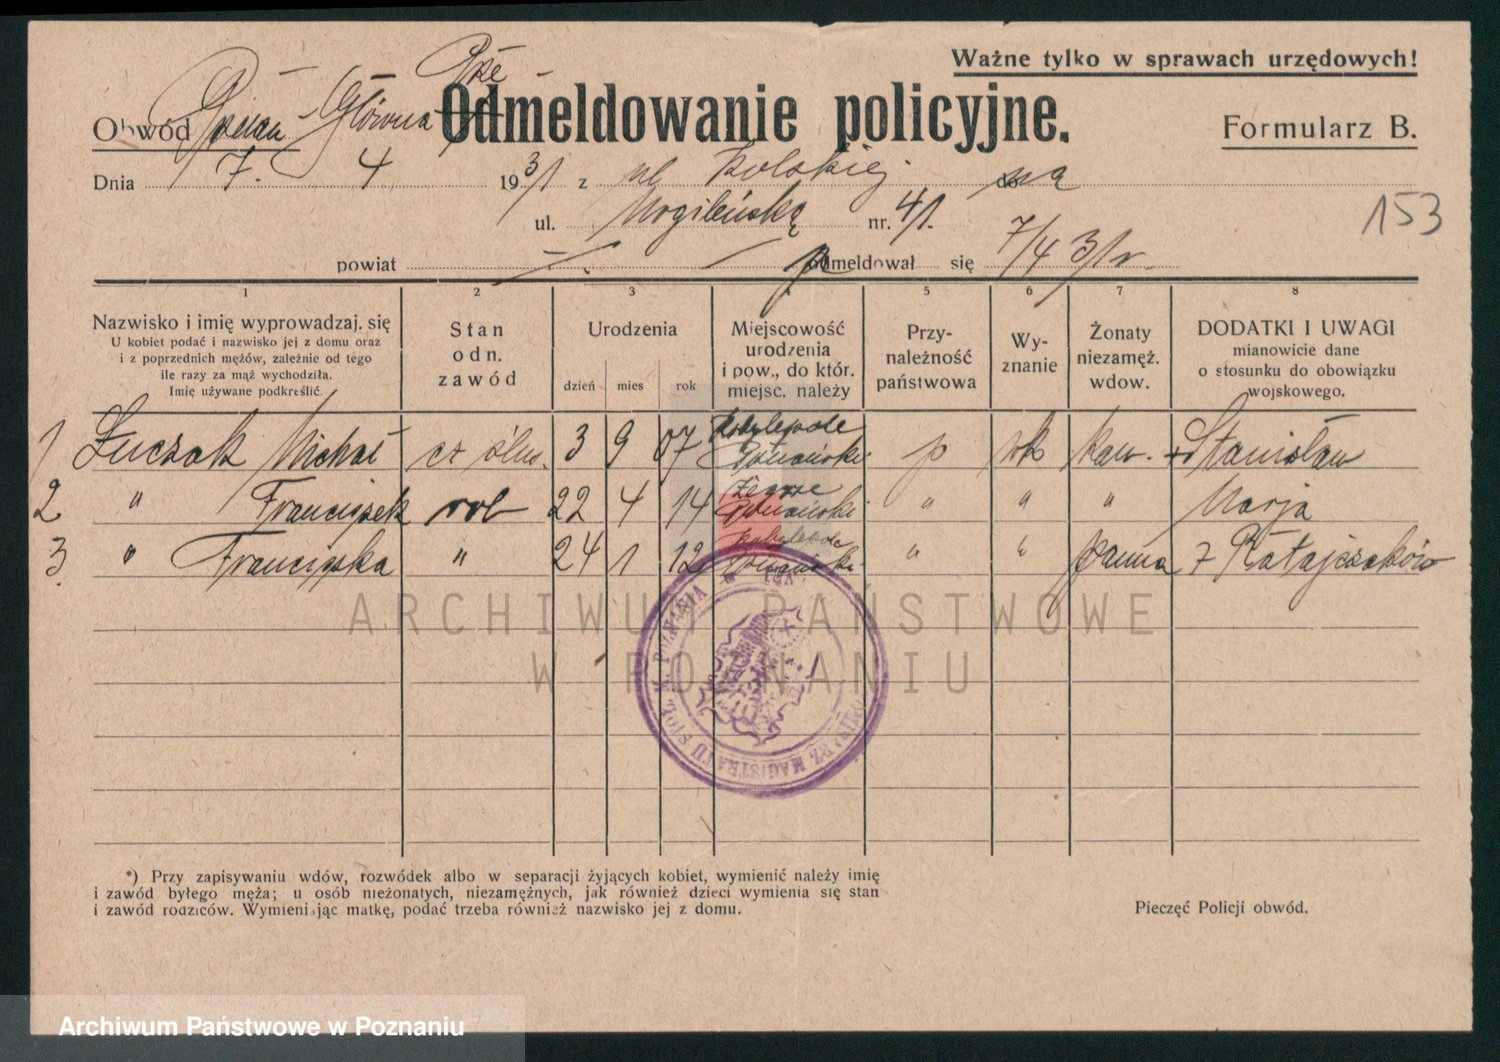 Ważne tylko w sprawach urzędowych!
Prze
Odmeldowanie policyjne.
Obwód Poznań - Główna
Formularz B.
Dnia 7. 4 1931 z ul Wolskiej na
ul. Mogileńską nr. 41.
153
powiat odmeldował się 7/4 31 r.
1 2 3 4 5 6 7 8
Nazwisko i imię wyprowadzaj. się
U kobiet podać i nazwisko jej z domu oraz
i z poprzednich mężów, zależnie od tego
ile razy za mąż wychodziła.
Imię używane podkreślić.
Stan
odn.
zawód
Urodzenia
dzień mies rok
Miejscowość
urodzenia
i pow., do któr.
miejsc. należy
Przy-
należność
państwowa
Wy-
znanie
Żonaty
niezamęż.
wdow.
DODATKI I UWAGI
mianowicie dane
o stosunku do obowiązku
wojskowego.
1 Łuczak Michał cz ślus. 3 9 07 Kobylepole Poznański p rk kaw. Stanisław
2 " Franciszek rob 22 4 14 Żegrze Poznański " " " Marja
3. " Franciszka " 24 1 12 Kobylepole Poznański " " panna z Ratajczaków
ARCHIWUM PAŃSTWOWE
W POZNANIU
MAGISTRATU STOŁ. M. POZNANIA
*) Przy zapisywaniu wdów, rozwódek albo w separacji żyjących kobiet, wymienić należy imię
i zawód byłego męża; u osób nieżonatych, niezamężnych, jak również dzieci wymienia się stan
i zawód rodziców. Wymieniając matkę, podać trzeba również nazwisko jej z domu.
Pieczęć Policji obwód.
Archiwum Państwowe w Poznaniu